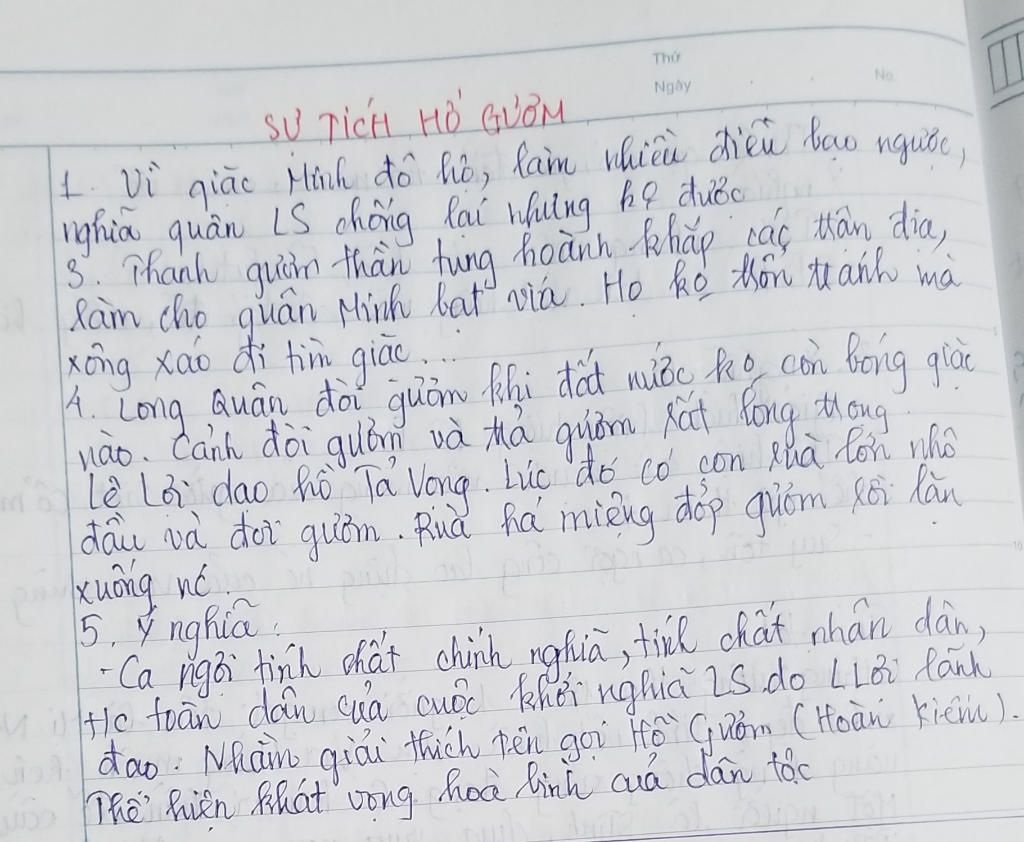 Thứ
Ngày
No
SỰ TÍCH HỒ GƯƠM
1. Vì giặc Minh đô hộ, làm nhiều điều bạo ngược,
nghĩa quân LS chống lại nhưng ko được
3. Thanh gươm thần tung hoành khắp các trận địa,
làm cho quân Minh bạt vía. Họ ko trốn tránh mà
xông xáo đi tìm giặc...
4. Long Quân đòi gươm khi đất nước ko còn bóng giặc
nào. Cảnh đòi gươm và trả gươm rất long trọng
Lê Lợi dạo hồ Tả Vọng. Lúc đó có con rùa lớn nhô
đầu và đòi gươm. Rùa há miệng đớp gươm rồi lặn
xuống nc.
5. Ý nghĩa:
- Ca ngợi tính chất chính nghĩa, tính chất nhân dân,
t/c toàn dân của cuộc khởi nghĩa LS do LLợi lãnh
đạo. Nhằm giải thích tên gọi Hồ Gươm (Hoàn Kiếm).
Thể hiện khát vọng hoà bình của dân tộc